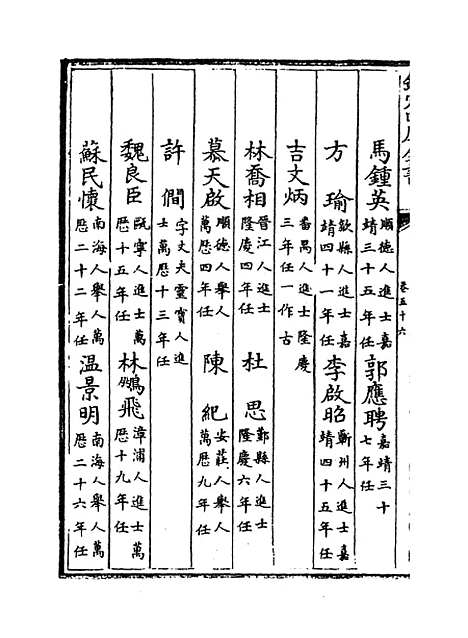 欽定四庫全書
卷五十六
馬鍾英 順德人進士嘉靖三十五年任 郭應聘 嘉靖三十七年任
方瑜 歙縣人進士嘉靖四十一年任 李啟昭 蘄州人進士嘉靖四十五年任
吉文炳 番禺人進士隆慶三年任一作古
林喬相 晉江人進士隆慶四年任 杜思 鄞縣人進士隆慶六年任
慕天啟 順德人舉人萬厯四年任 陳紀 安莊人舉人萬厯九年任
許僩 字文夫靈寳人進士萬厯十三年任
魏良臣 甌寧人進士萬厯十五年任 林飛 漳浦人進士萬厯十九年任
蘇民懷 南海人舉人萬厯二十二年任 温景明 南海人舉人萬厯二十六年任